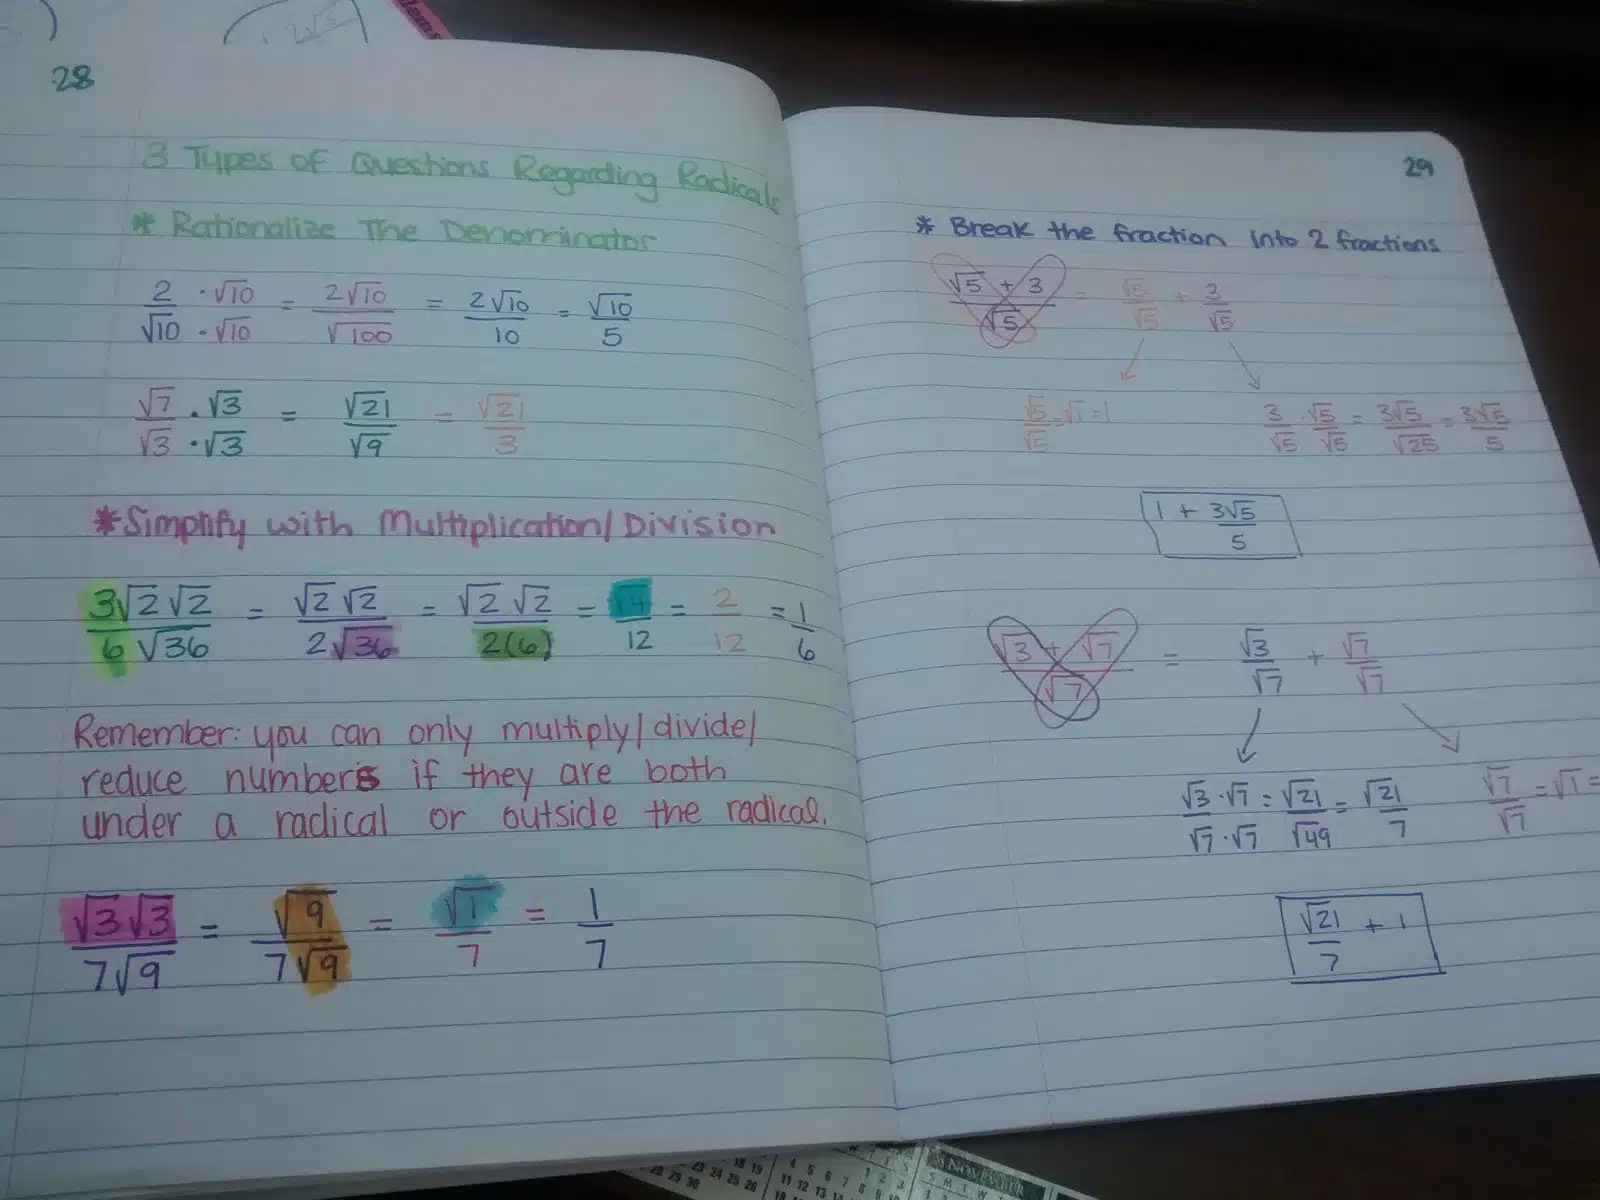 28
3 Types of Questions Regarding Radicals
* Rationalize The Denominator
2/√10 · √10/√10 = 2√10/√100 = 2√10/10 = √10/5
√7/√3 · √3/√3 = √21/√9 = √21/3
*Simplify with Multiplication/Division
3√2√2/6√36 = √2√2/2√36 = √2√2/2(6) = √4/12 = 2/12 = 1/6
Remember: you can only multiply/divide/
reduce numbers if they are both
under a radical or outside the radical.
√3√3/7√9 = √9/7√9 = √1/7 = 1/7
29
* Break the fraction into 2 fractions
√5 + 3/√5 = √5/√5 + 3/√5
√5/√5 = √1 = 1
3/√5 · √5/√5 = 3√5/√25 = 3√5/5
1 + 3√5/5
√3 + √7/√7 = √3/√7 + √7/√7
√3 · √7/√7 · √7 = √21/√49 = √21/7
√7/√7 = √1 =
√21/7 + 1
NOVEMBER